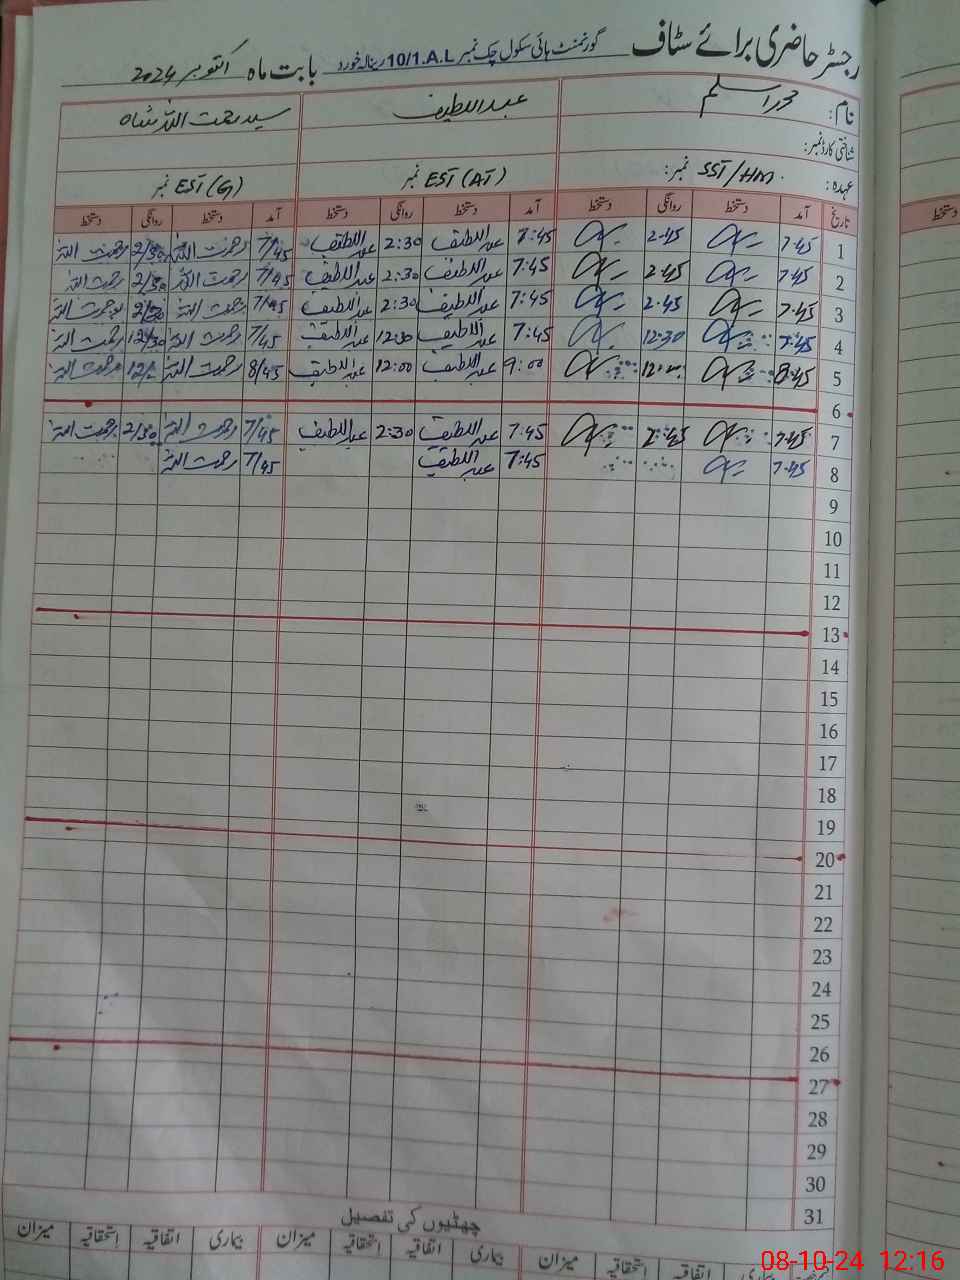 رجسٹر حاضری برائے سٹاف گورنمنٹ ہائی سکول چک نمبر 10/1.A.L رینالہ خورد بابت ماہ اکتوبر 2024
نام: محمد اسلم عبداللطیف سید رحمت اللہ شاہ
شناختی کارڈ نمبر:
عہدہ: SST/HM نمبر: EST (AT) نمبر EST (G) نمبر
تاریخ آمد دستخط روانگی دستخط آمد دستخط روانگی دستخط آمد دستخط روانگی دستخط
1 7.45 2.45 7:45 عبداللطیف 2:30 عبداللطیف 7/45 رحمت اللہ 2/30 رحمت اللہ
2 7.45 2.45 7:45 عبداللطیف 2:30 عبداللطیف 7/45 رحمت اللہ 2/30 رحمت اللہ
3 7.45 2.45 7:45 عبداللطیف 2:30 عبداللطیف 7/45 رحمت اللہ 2/30 رحمت اللہ
4 7.45 12.30 7:45 عبداللطیف 12:00 عبداللطیف 7/45 رحمت اللہ 12/30 رحمت اللہ
5 8.45 9:00 عبداللطیف 12:00 عبداللطیف 8/45 رحمت اللہ رحمت اللہ
6
7 7.45 2.45 7:45 عبداللطیف 2:30 عبداللطیف 7/45 رحمت اللہ 2/30 رحمت اللہ
8 7.45 7:45 عبداللطیف 7/45 رحمت اللہ
9
10
11
12
13
14
15
16
17
18
19
20
21
22
23
24
25
26
27
28
29
30
31
چھٹیوں کی تفصیل
بیماری اتفاقیہ استحقاقیہ میزان بیماری اتفاقیہ استحقاقیہ میزان بیماری اتفاقیہ استحقاقیہ میزان
08-10-24 12:16